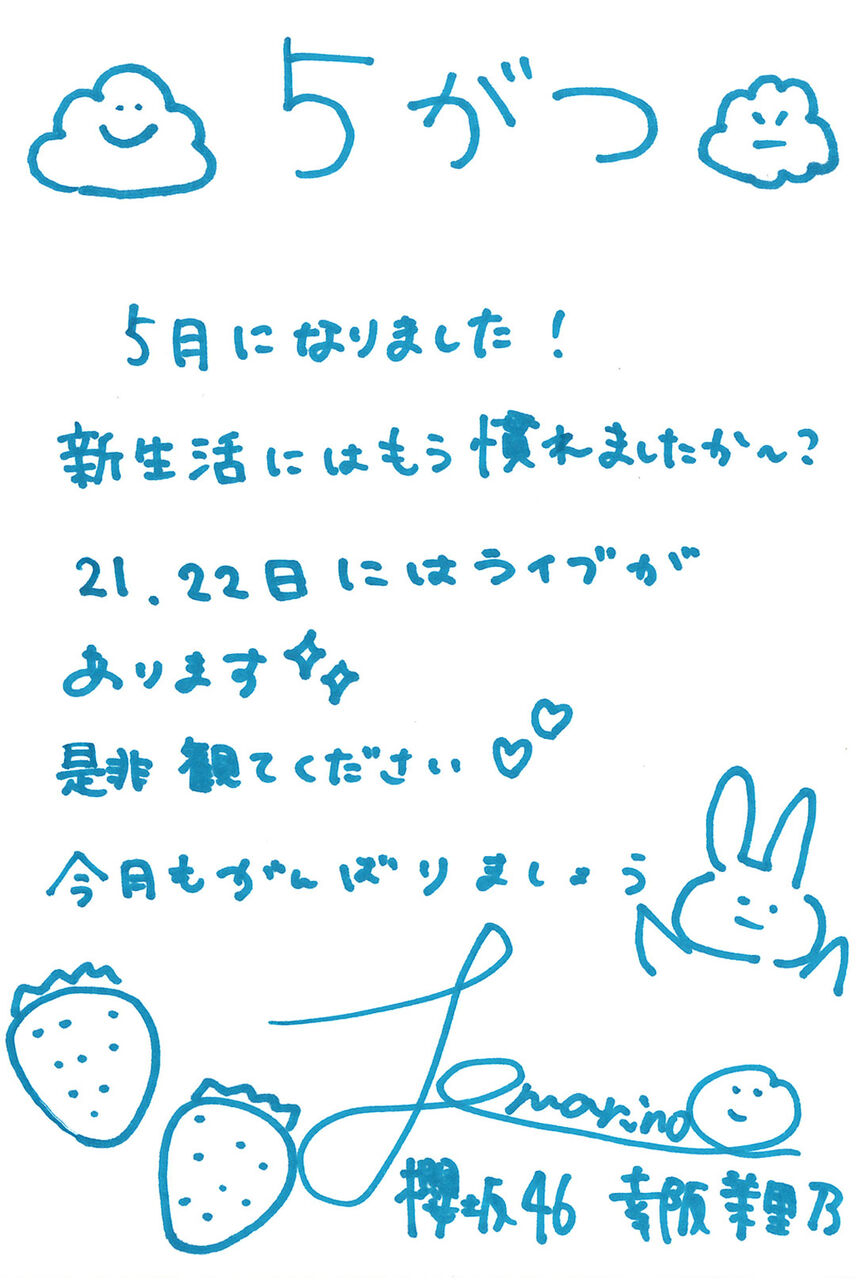 5がつ
5月になりました!
新生活にはもう慣れましたか〜?
21.22日にはライブが
あります
是非観てください
今月もがんばりましょう
marino
櫻坂46 幸阪茉里乃